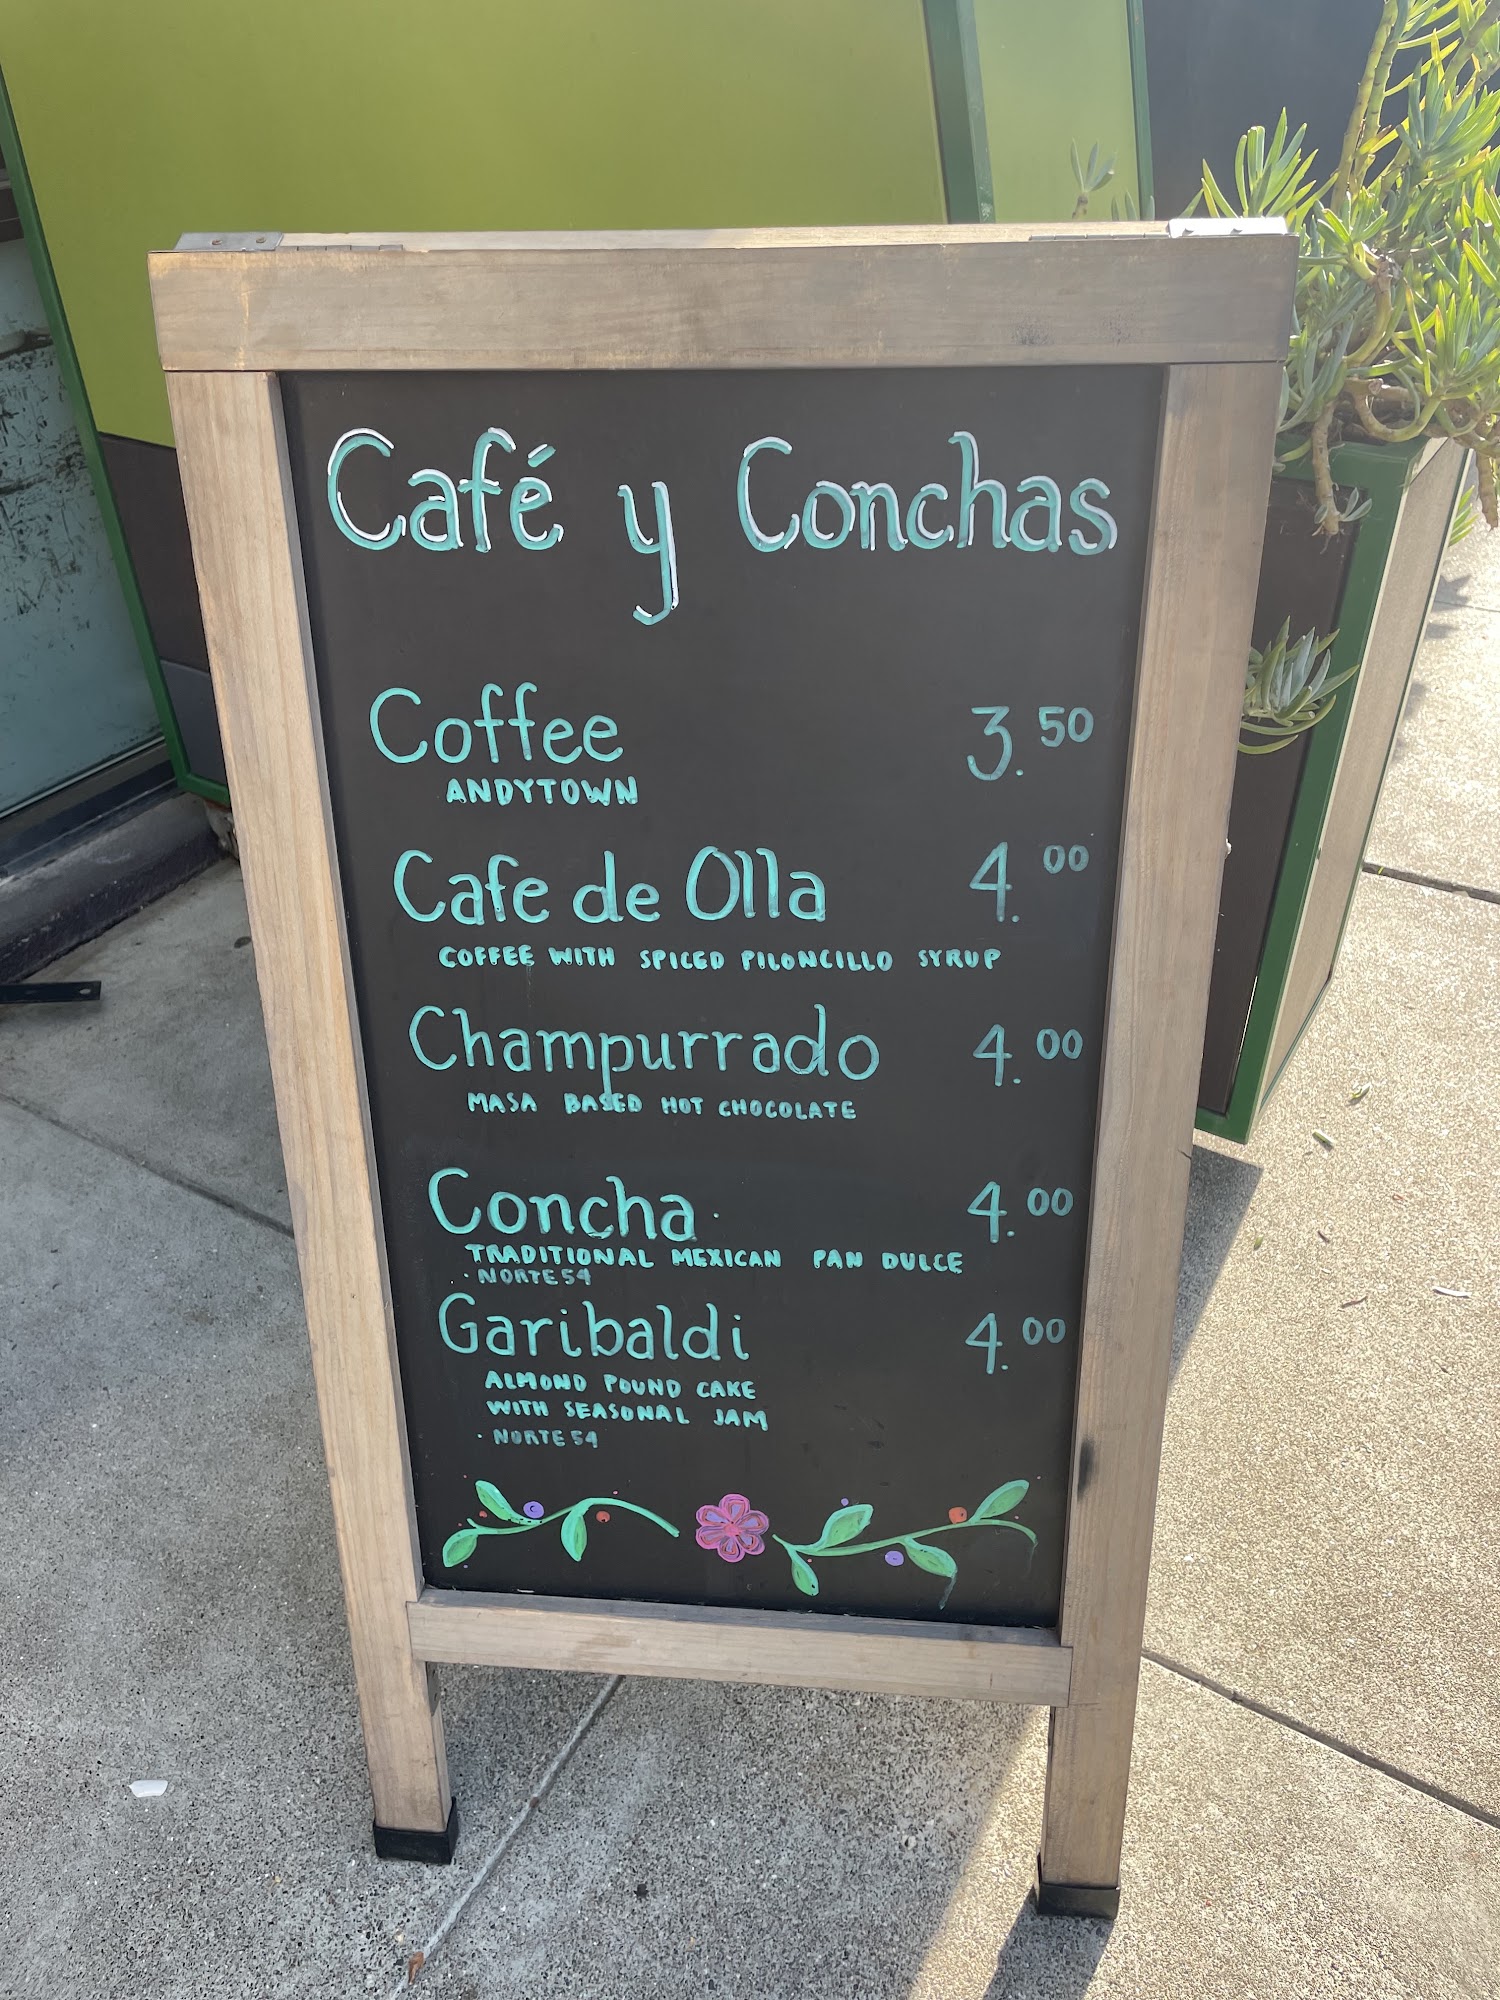 Café y Conchas
Coffee 3.50
ANDYTOWN
Cafe de Olla 4.00
COFFEE WITH SPICED PILONCILLO SYRUP
Champurrado 4.00
MASA BASED HOT CHOCOLATE
Concha 4.00
TRADITIONAL MEXICAN PAN DULCE
· NORTE 54
Garibaldi 4.00
ALMOND POUND CAKE
WITH SEASONAL JAM
· NORTE 54